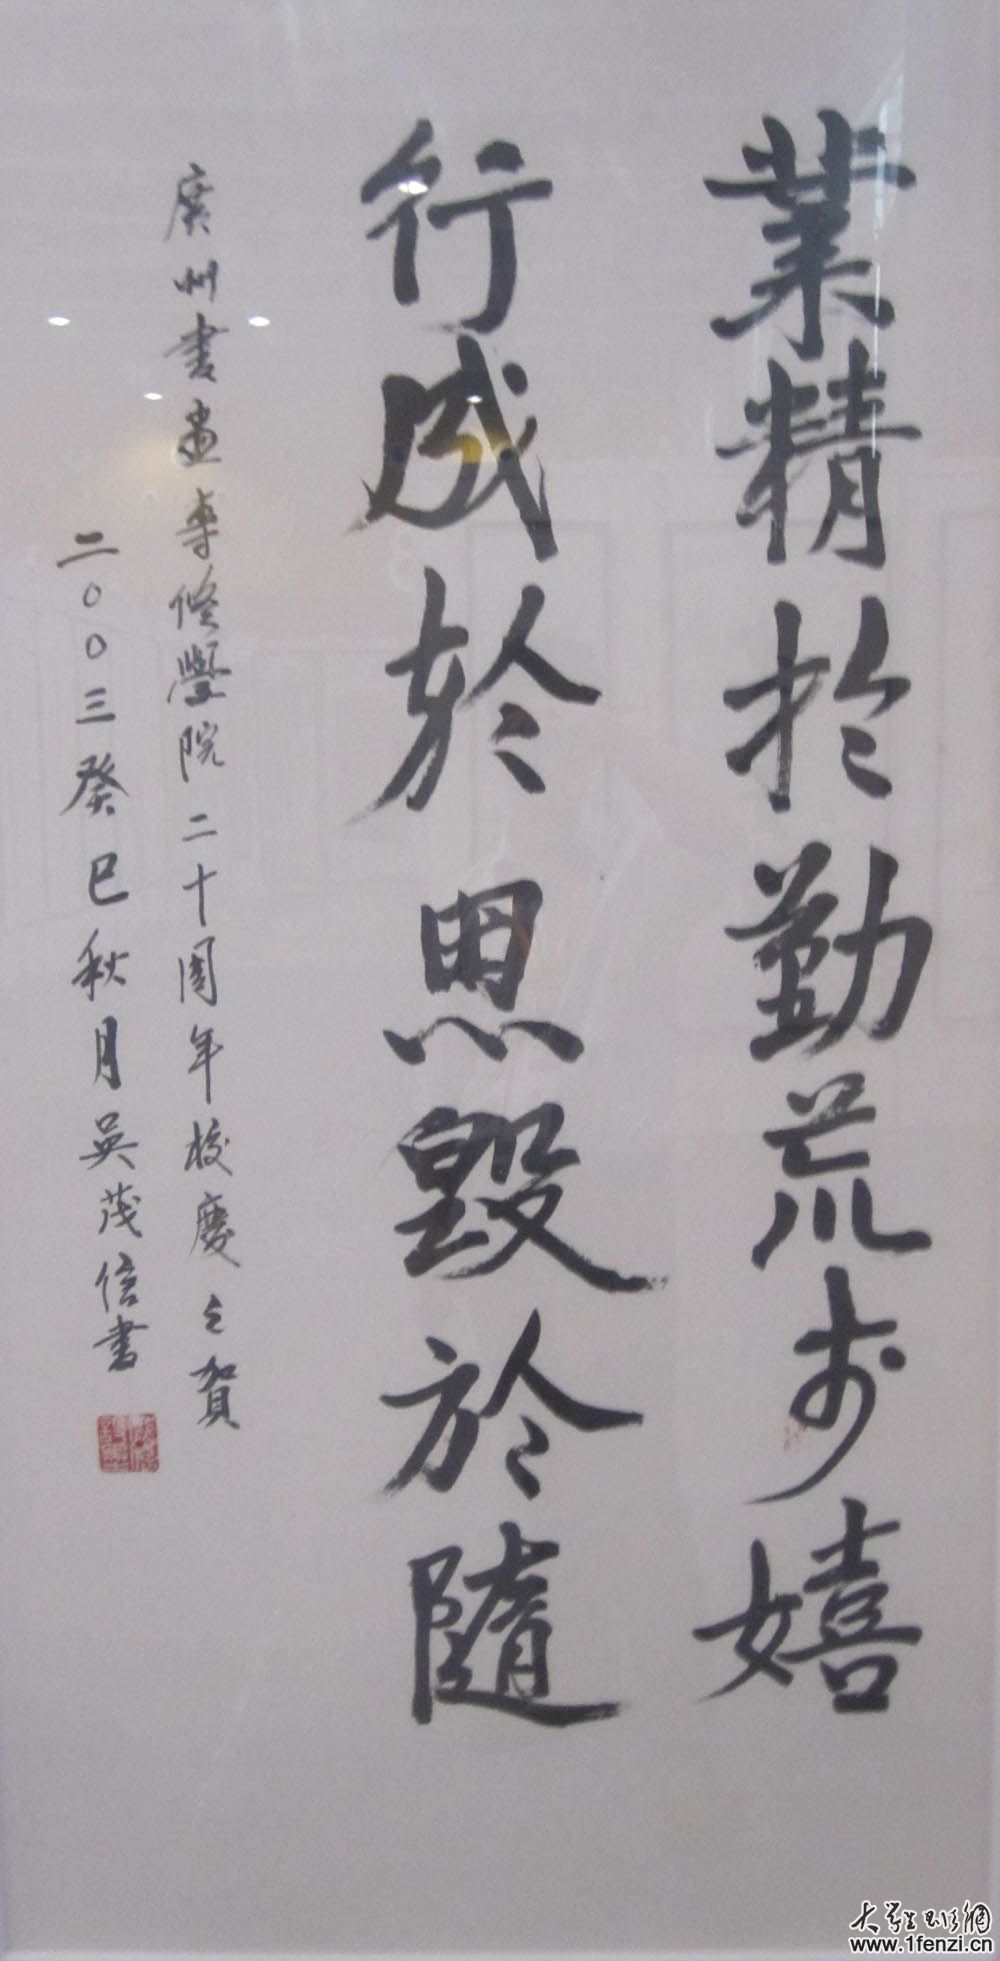 業精於勤荒於嬉
行成於思毀於隨
廣州書畫專修學院二十周年校慶之賀
二〇〇三癸巳秋月吴茂信書
大学生书法網
www.1fenzi.cn